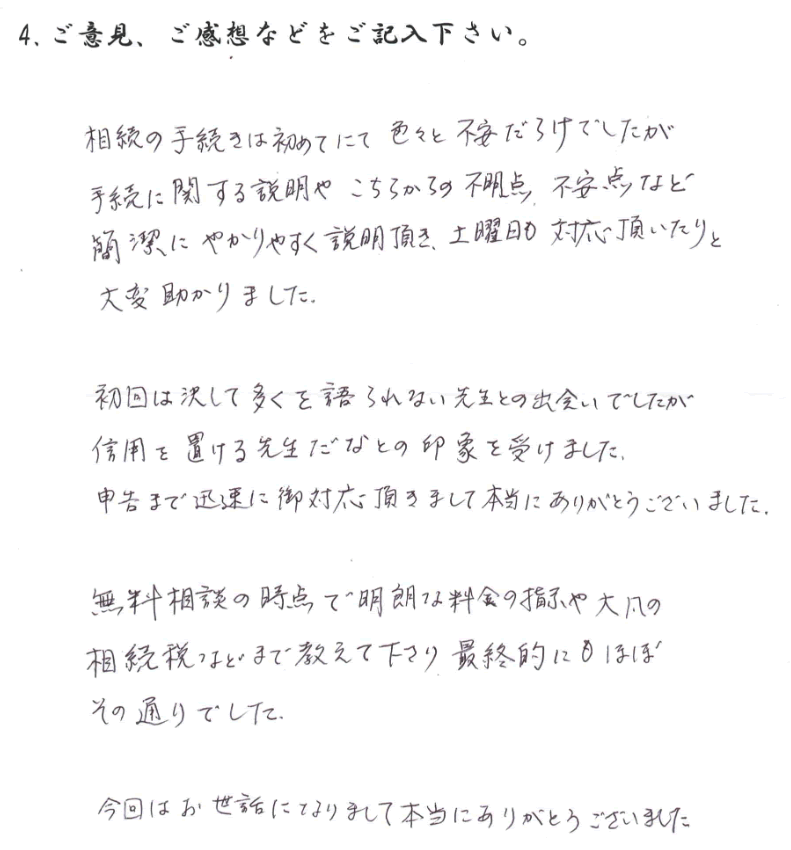 4. ご意見、ご感想などをご記入下さい。
相続の手続きは初めてにて色々と不安だらけでしたが
手続に関する説明や こちらからの不明点、不安点など
簡潔に やかりやすく説明頂き、土曜日も対応頂いたりと
大変助かりました.
初回は決して多くを語られない先生との出会いでしたが
信用を置ける先生だなとの印象を受けました.
申告まで迅速に御対応頂きまして本当にありがとうございました.
無料相談の時点で明朗な料金の指示や大凡の
相続税などまで教えて下さり最終的にもほぼ
その通りでした.
今回はお世話になりまして本当にありがとうございました